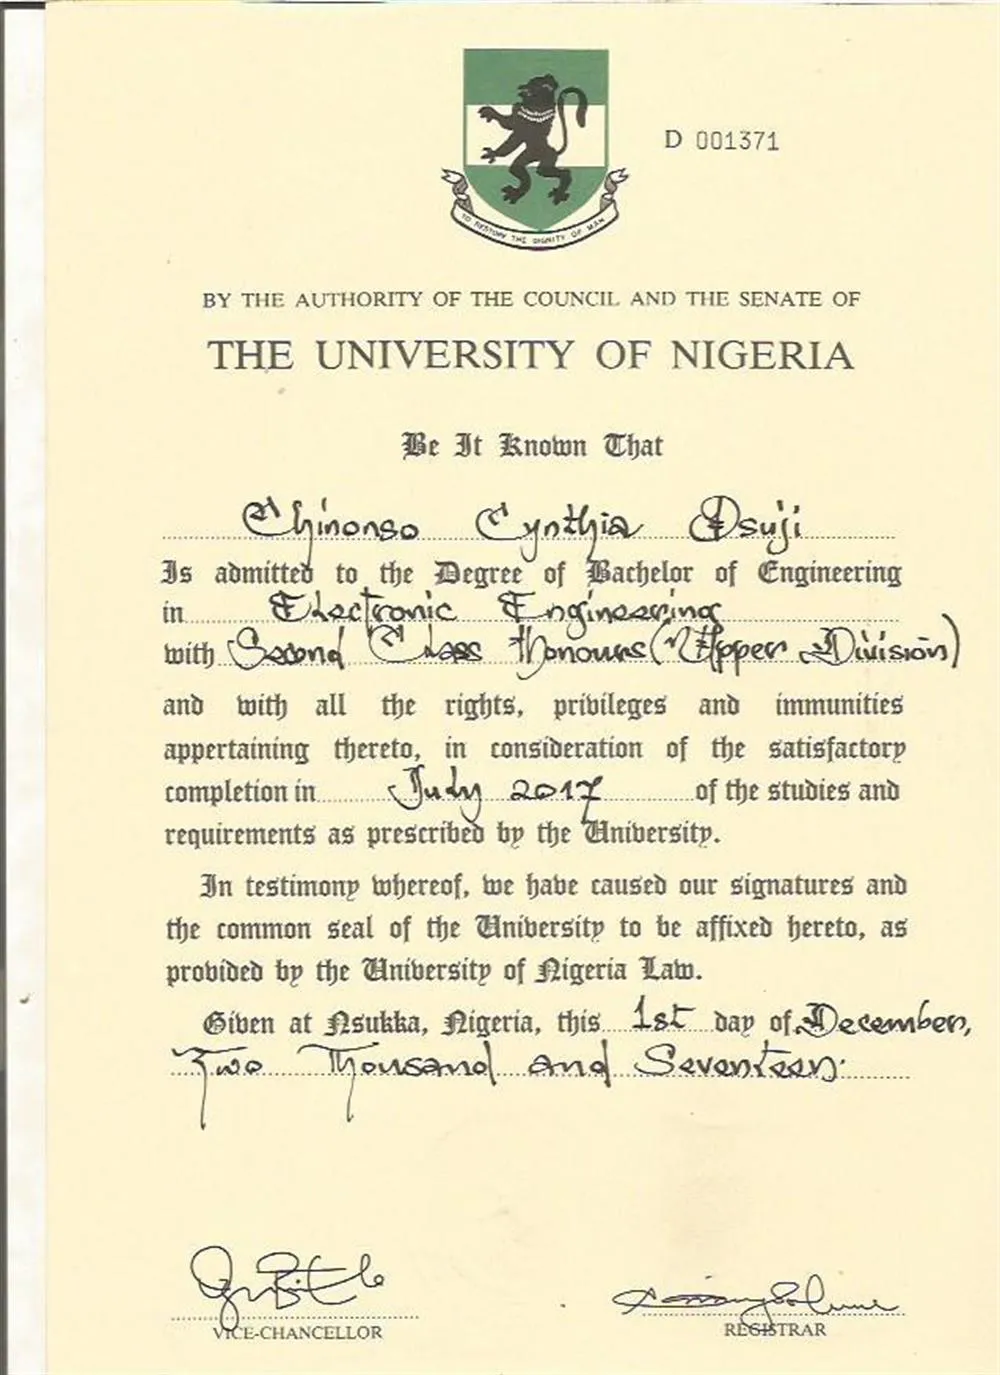 D 001371
TO RESTORE THE DIGNITY OF MAN
BY THE AUTHORITY OF THE COUNCIL AND THE SENATE OF
THE UNIVERSITY OF NIGERIA
Be It Known That
Chinonso Cynthia Osuji
Is admitted to the Degree of Bachelor of Engineering
in Electronic Engineering
with Second Class Honours (Upper Division)
and with all the rights, privileges and immunities
appertaining thereto, in consideration of the satisfactory
completion in July 2017 of the studies and
requirements as prescribed by the University.
In testimony whereof, we have caused our signatures and
the common seal of the University to be affixed hereto, as
provided by the University of Nigeria Law.
Given at Nsukka, Nigeria, this 1st day of December,
Two Thousand and Seventeen.
VICE-CHANCELLOR
REGISTRAR